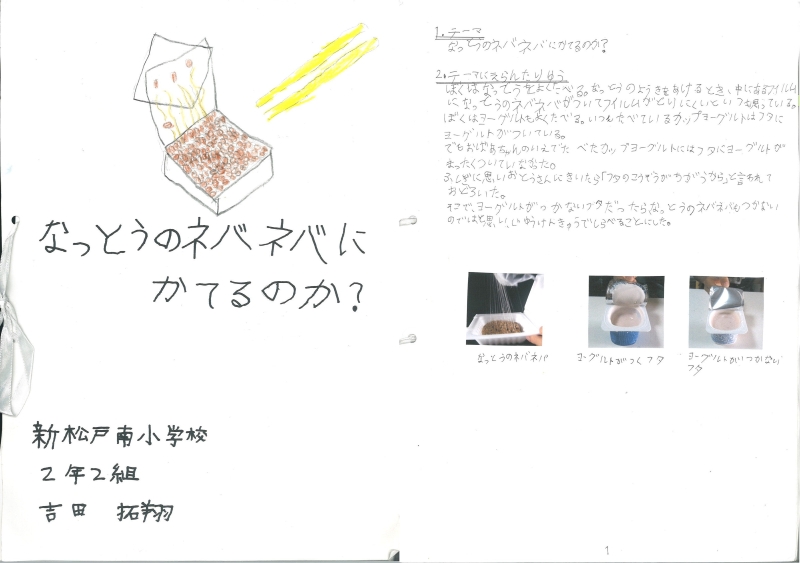 なっとうのネバネバに
かてるのか?
新松戸南小学校
2年2組
吉田 拓翔
1.テーマ
なっとうのネバネバにかてるのか?
2.テーマにえらんだりゆう
ぼくはなっとうをよくたべる。なっとうのようきをあけるとき、中にあるフィルム
になっとうのネバネバがついてフイルムがとりにくいといつも思っている。
ぼくはヨーグルトもよくたべる。いつもたべているカップヨーグルトはフタに
ヨーグルトがついている。
でもおばあちゃんのいえでたべたカップヨーグルトにはフタにヨーグルトが
まったくついていなかった。
ふしぎに思いおとうさんにきいたら「フタのこうぞうがちがうから」と言われて
おどろいた。
そこで、ヨーグルトがつかないフタだったらなっとうのネバネバもつかない
のではと思い、じゆうけんきゅうでしらべることにした。
なっとうのネバネバ
ヨーグルトがつくフタ
ヨーグルトがつかない
フタ
1